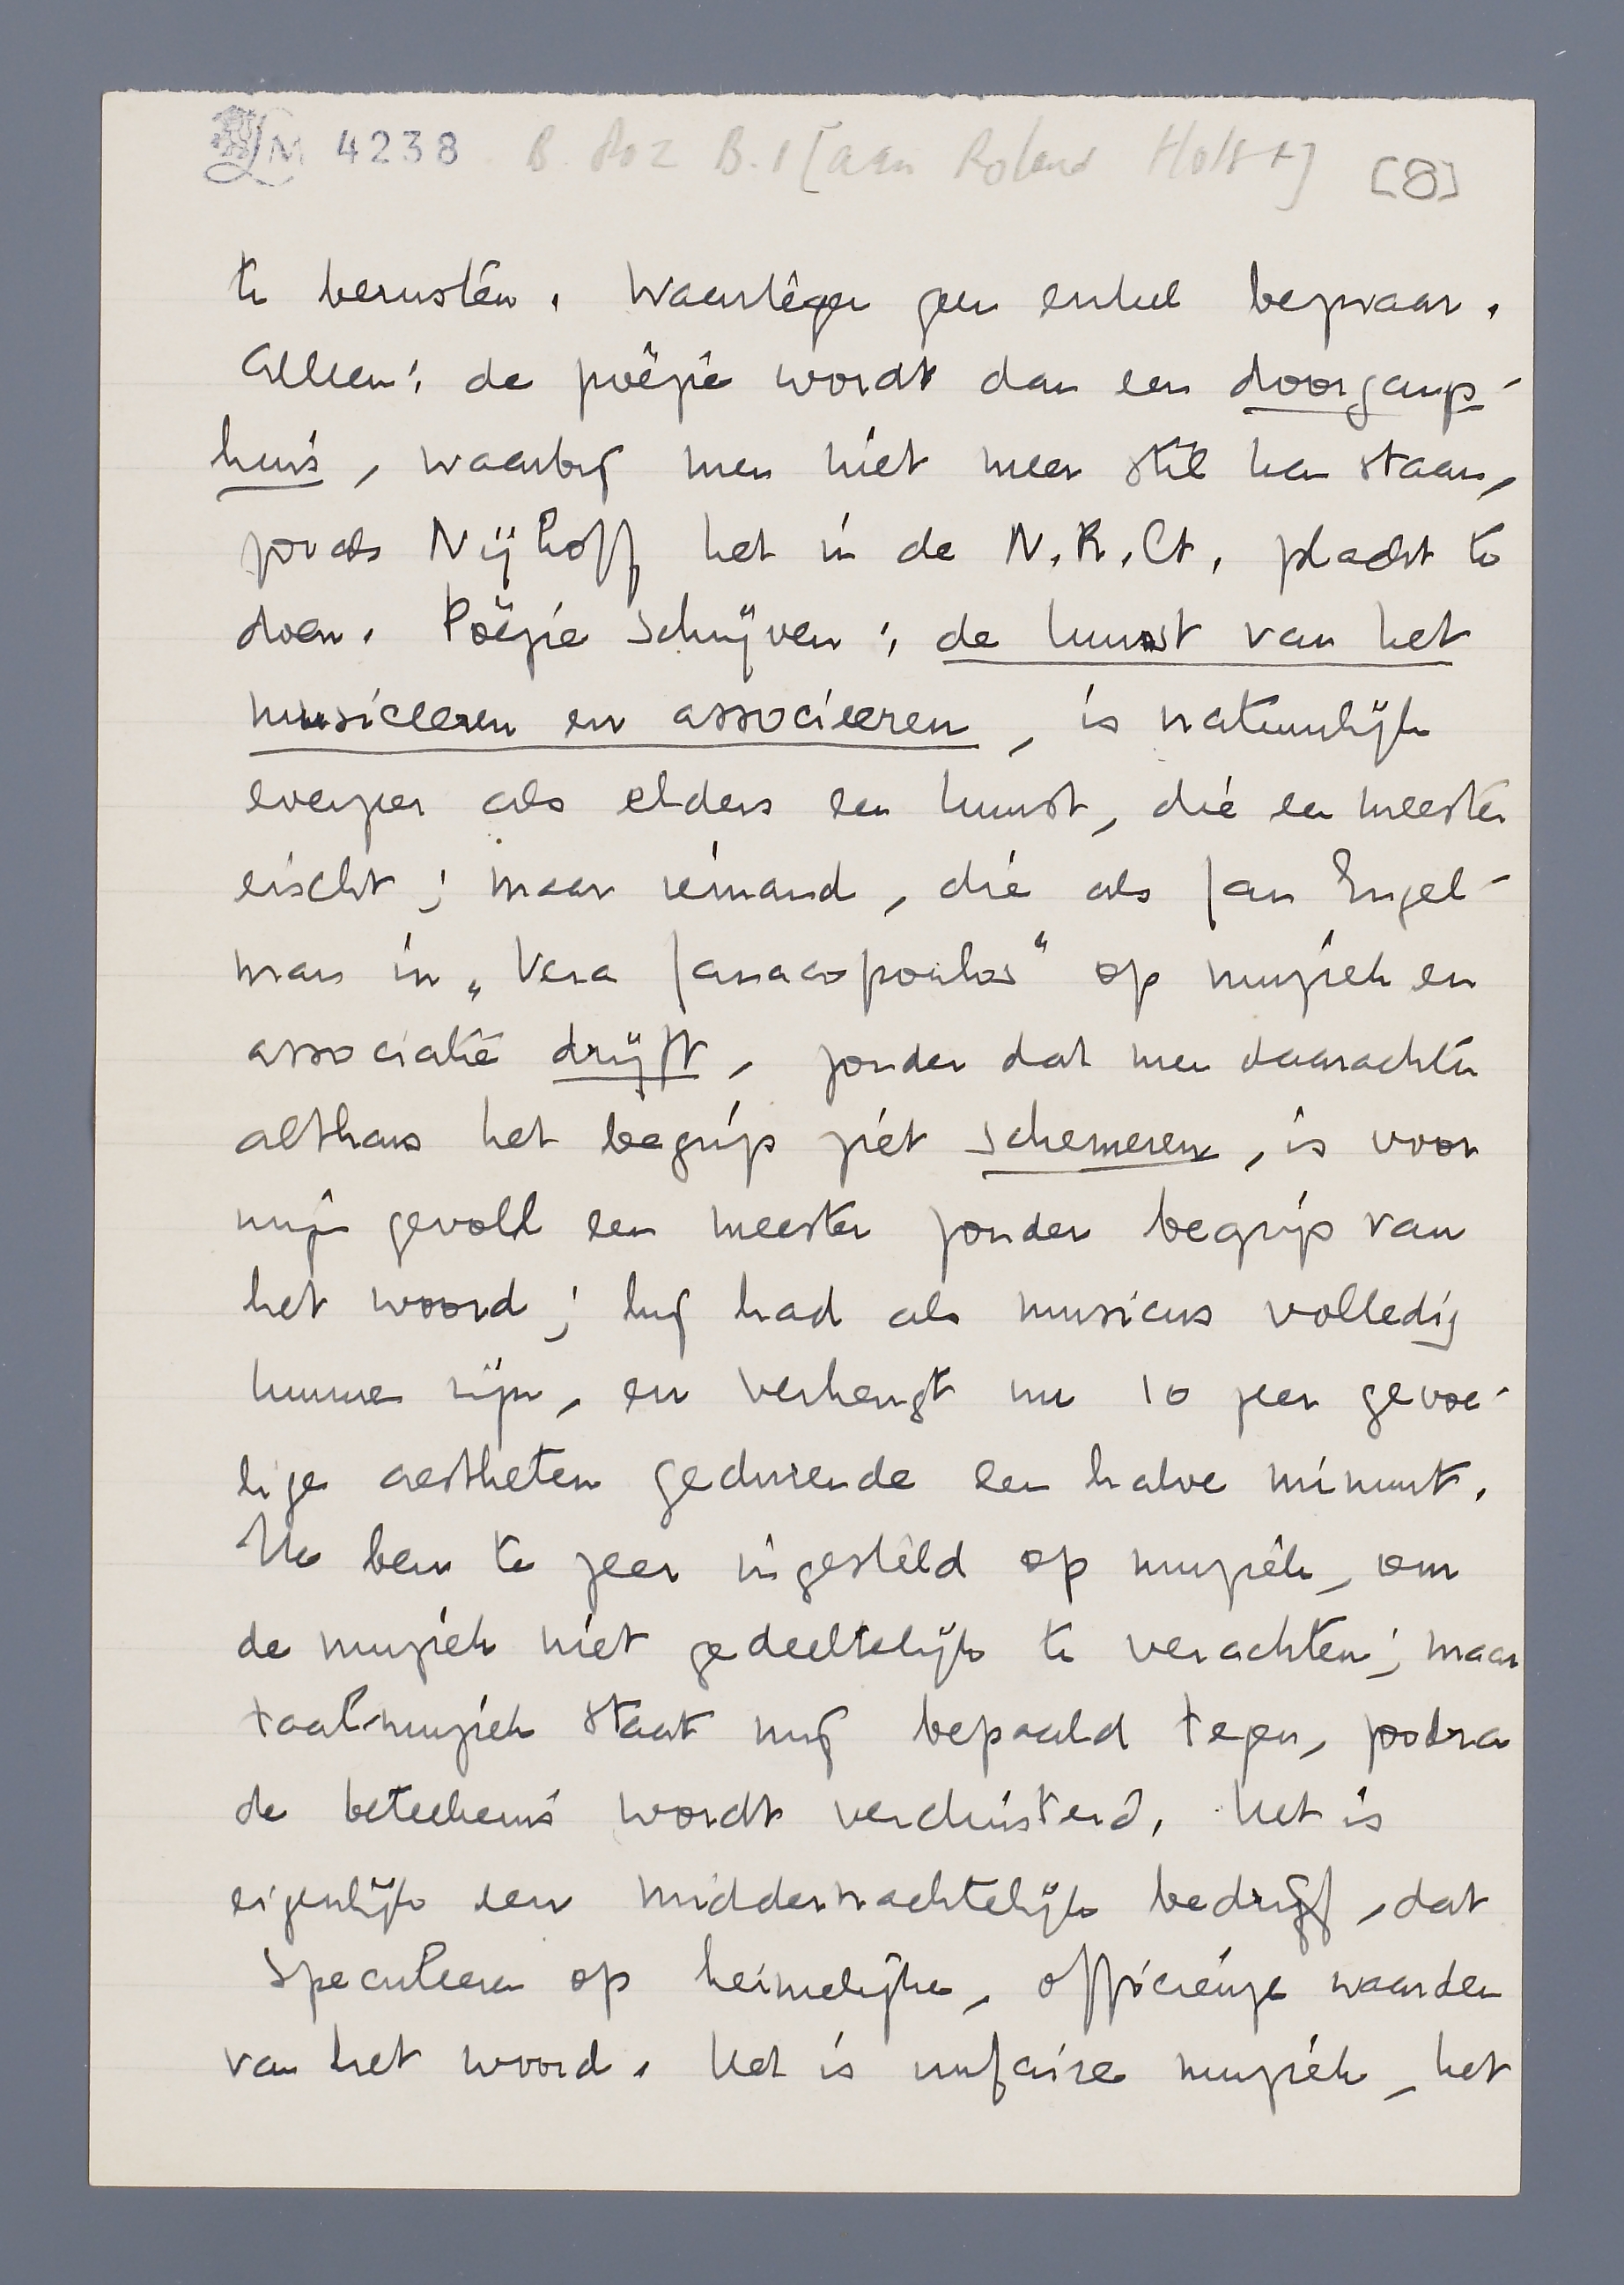 LM 4238 B. 802 B.1 [aan Roland Holst] [8]
te berusten. Waartegen geen enkel bezwaar.
Alleen: de poëzie wordt dan een doorgangs-
huis, waarbij men niet meer stil kan staan,
zooals Nijhoff het in de N.R.Ct. placht te
doen. Poëzie schrijven: de kunst van het
musiceeren en associeeren, is natuurlijk
evenzeer als elders een kunst, die een meester
eischt; maar iemand, die als Jan Engel-
man in „Vera Janacopoulos" op muziek en
associatie drijft, zonder dat men daarachter
althans het begrip ziet schemeren, is voor
mijn gevoel een meester zonder begrip van
het woord; hij had als musicus volledig
kunnen zijn, en verheugt nu 10 zeer gevoe-
lige aestheten gedurende een halve minuut.
Ik ben te zeer ingesteld op muziek, om
de muziek niet gedeeltelijk te verachten; maar
taalmuziek staat mij bepaald tegen, zoodra
de beteekenis wordt verduisterd. Het is
eigenlijk een middernachtelijk bedrijf, dat
speculeeren op heimelijke, officieuze waarden
van het woord. Het is unfaire muziek, het